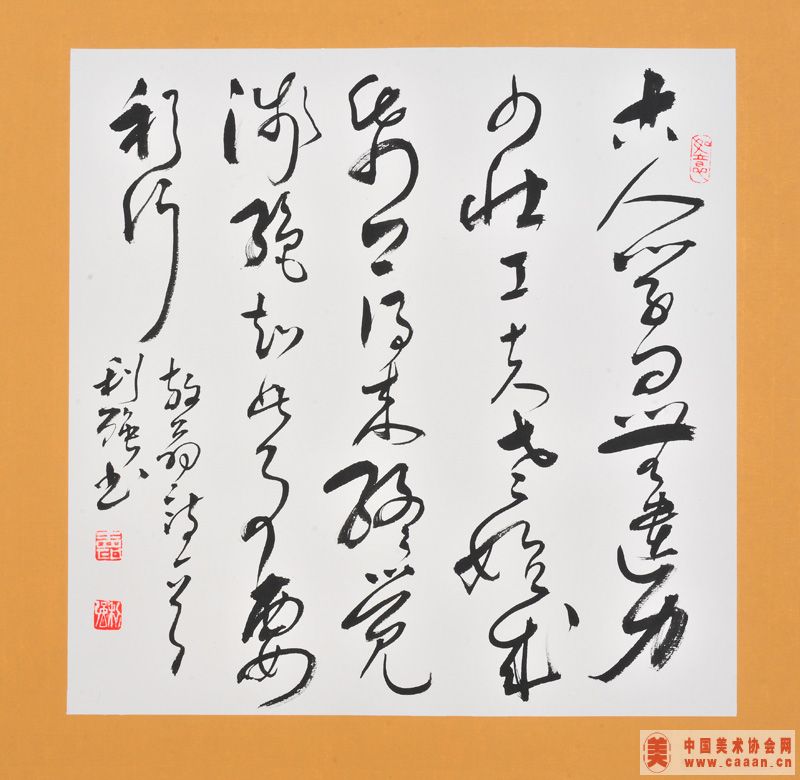 古人学问無遺力
少壮工夫老始成
紙上得来終觉
淺絕知此事要
躬行
放翁诗一首
利强书
美
中国美术协会网
www.caaan.cn